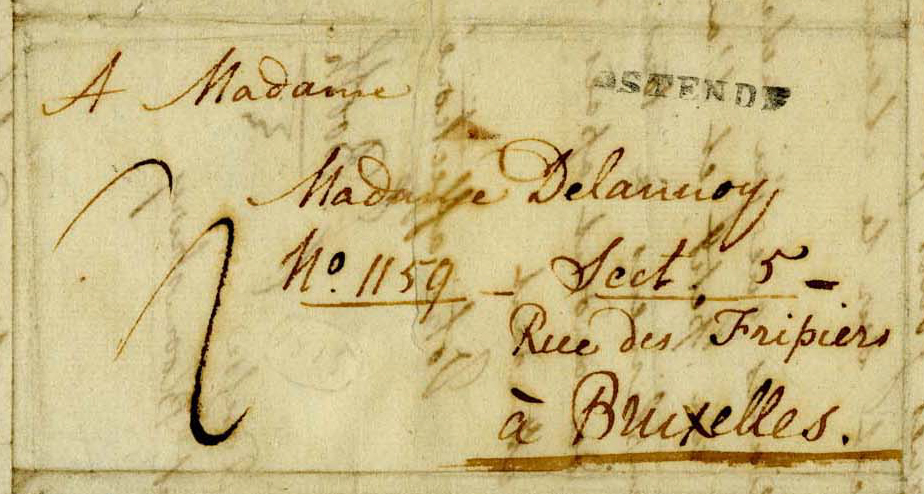 A Madame
OSTENDE
Madame Delannoy
No. 1159 - Sect. 5 -
Rue des Fripiers
à Bruxelles.